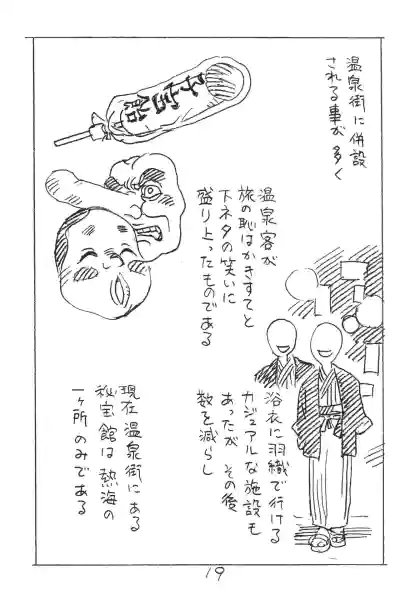 温泉街に併設
される事が多く
子宝飴
温泉客が
旅の恥はかきすてと
下ネタの笑いに
盛り上ったものである
浴衣に羽織で行ける
カジュアルな施設も
あったが その後
数を減らし
現在 温泉街にある
秘宝館は熱海の
一ヶ所のみである
19